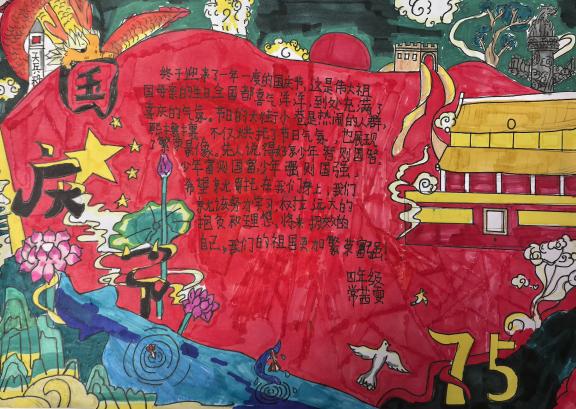 国
庆
节
终于迎来了一年一度的国庆节,这是伟大祖
国母亲的生日全国都喜气洋洋,到处充满了
喜庆的气氛。节日的大街小巷是热闹的人群,
熙熙攘攘,不仅烘托了节日气氛,也展现
了繁荣影像。先人说得好:少年智则国智,
少年富则国富少年强则国强。
希望就寄托在我们身上,我们
就应该努力学习,树立远大的
抱负和理想,将来
自己,我们的祖国更加繁荣富强
四年级
常茜
75